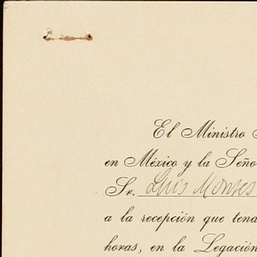 El Ministro
en México y la Seño
Sr. Luis Montes
a la recepción que tend
horas, en la Legación